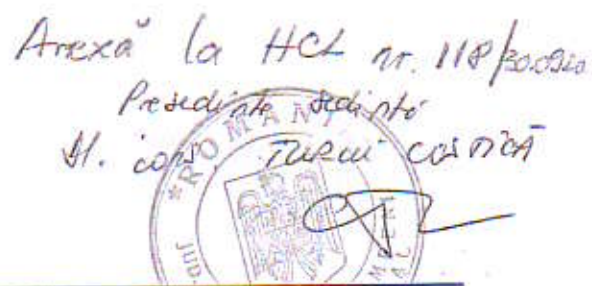 Anexă la HCL nr. 118/30.09.20
Presedinte sedintă
dl. cons. TURCU COSTICĂ
*ROMANI